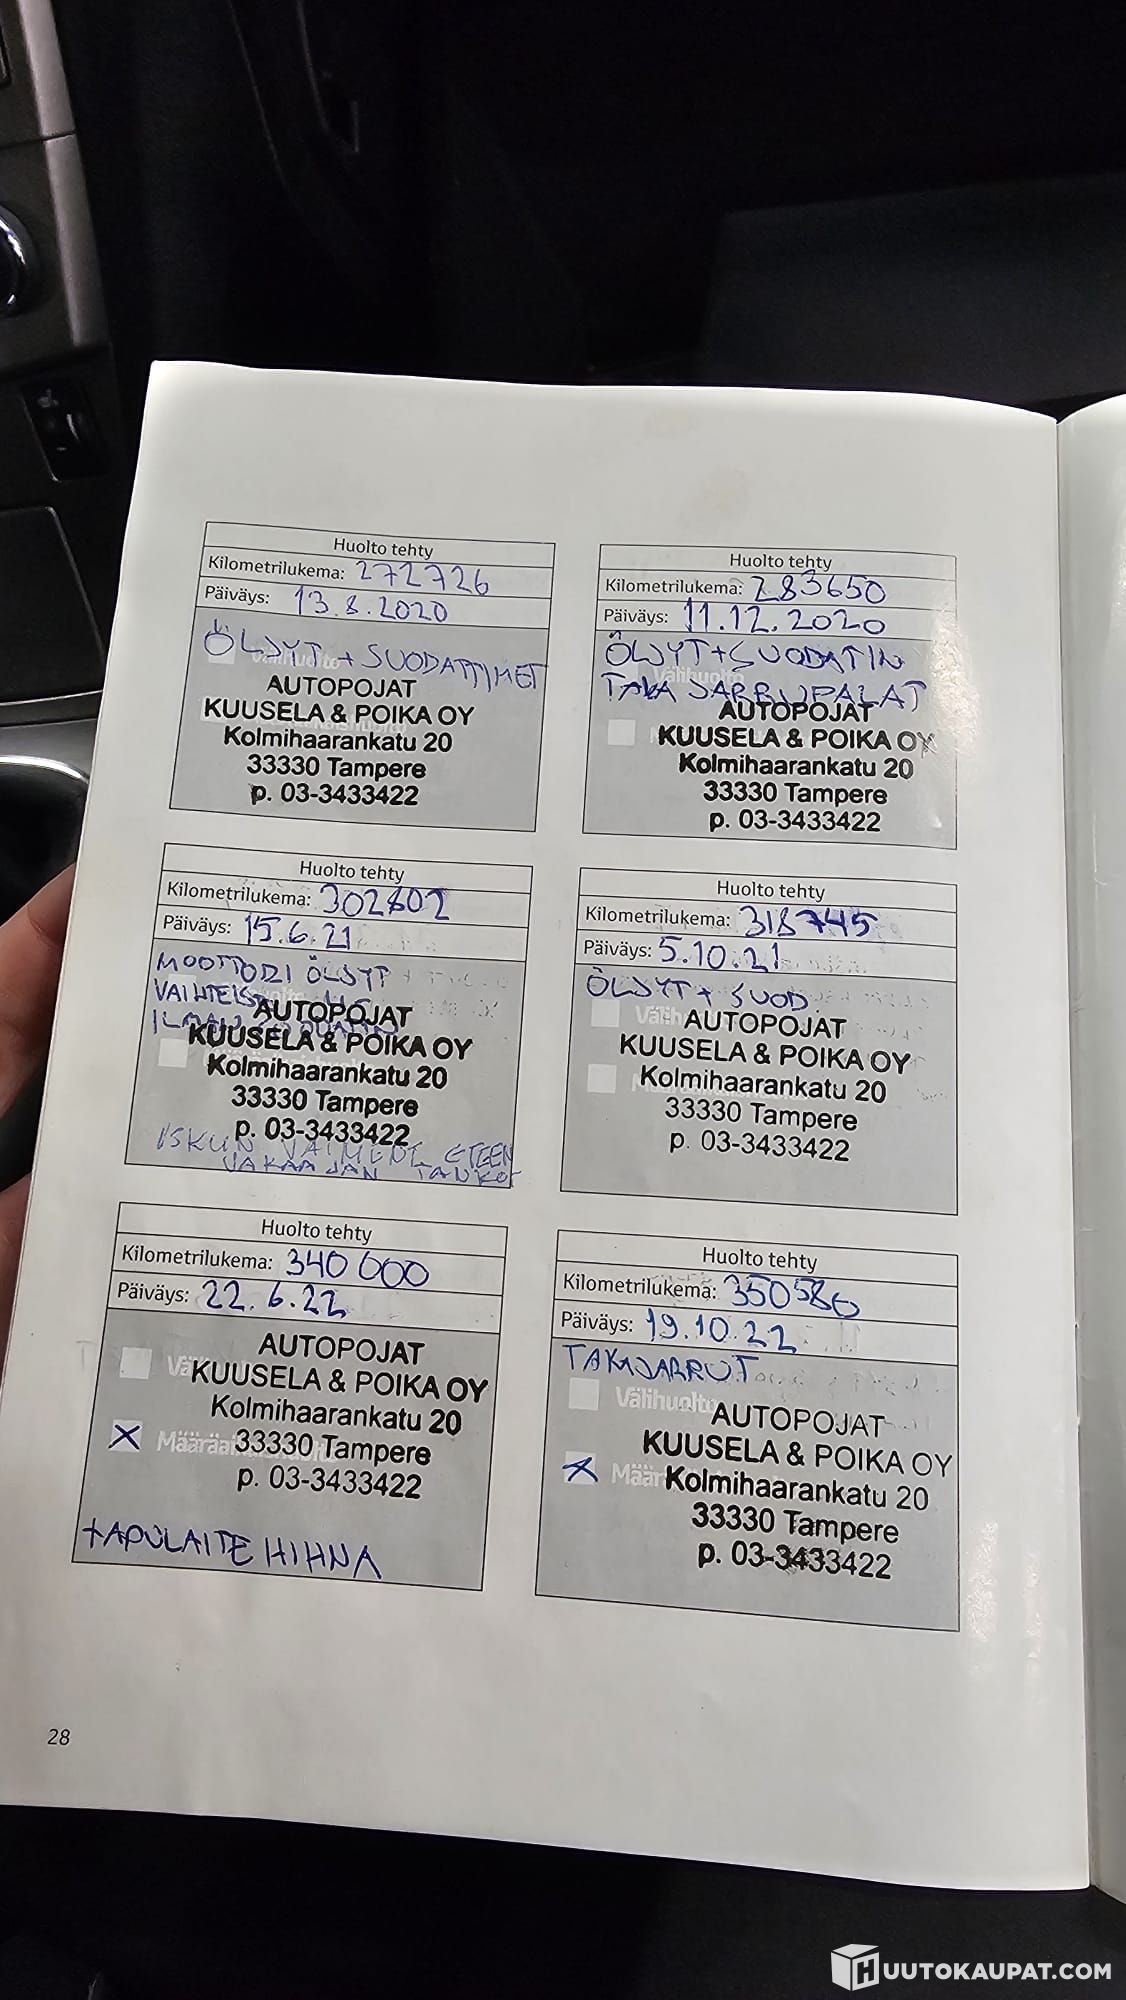 Huolto tehty
Kilometrilukema: 272726
Päiväys: 13.8.2020
ÖLJYT + SUODATTIMET
Välihuolto
AUTOPOJAT
KUUSELA & POIKA OY
Kolmihaarankatu 20
33330 Tampere
p. 03-3433422
Huolto tehty
Kilometrilukema: 283650
Päiväys: 11.12.2020
ÖLJYT + SUODATIN
Välihuolto
TAKA JARRUPALAT
AUTOPOJAT
KUUSELA & POIKA OY
Kolmihaarankatu 20
33330 Tampere
p. 03-3433422
Huolto tehty
Kilometrilukema: 302802
Päiväys: 15.6.21
MOOTTORI ÖLJYT +
AUTOPOJAT
KUUSELA & POIKA OY
Kolmihaarankatu 20
33330 Tampere
p. 03-3433422
ISKUN VAIMEDE ETEEN
VAKAAJAN TANKO
Huolto tehty
Kilometrilukema: 318745
Päiväys: 5.10.21
ÖLJYT + SUOD
AUTOPOJAT
KUUSELA & POIKA OY
Kolmihaarankatu 20
33330 Tampere
p. 03-3433422
Huolto tehty
Kilometrilukema: 340 000
Päiväys: 22.6.22
AUTOPOJAT
KUUSELA & POIKA OY
Kolmihaarankatu 20
33330 Tampere
p. 03-3433422
+APULAITE HIHNA
Huolto tehty
Kilometrilukema: 350586
Päiväys: 19.10.22
TAKAJARRUT
Välihuolto
AUTOPOJAT
KUUSELA & POIKA OY
Kolmihaarankatu 20
33330 Tampere
p. 03-3433422
28
HUUTOKAUPAT.COM